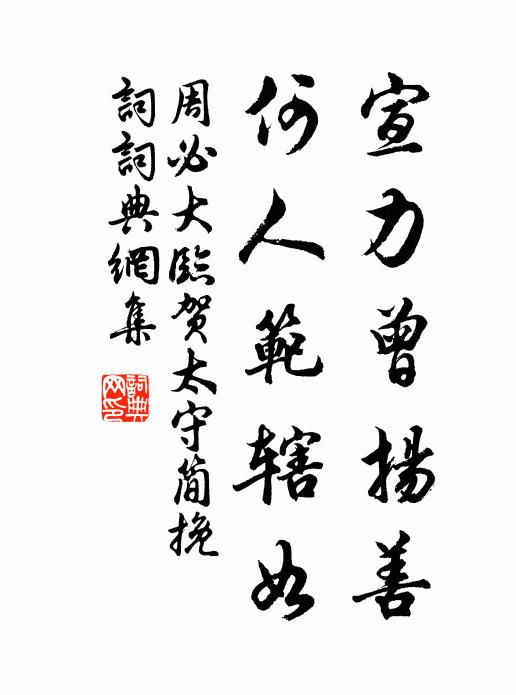 宣力曾揚善
何人範辖如
周必大臨賀太守简挽
詞詞典網集
詞典网印